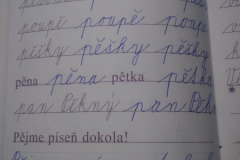 poupě poupě poupě
pěšky pěšky pěšky
pěna pěna pětka pětka
pan Pěkný pan Pěkn
Pějme píseň dokola!